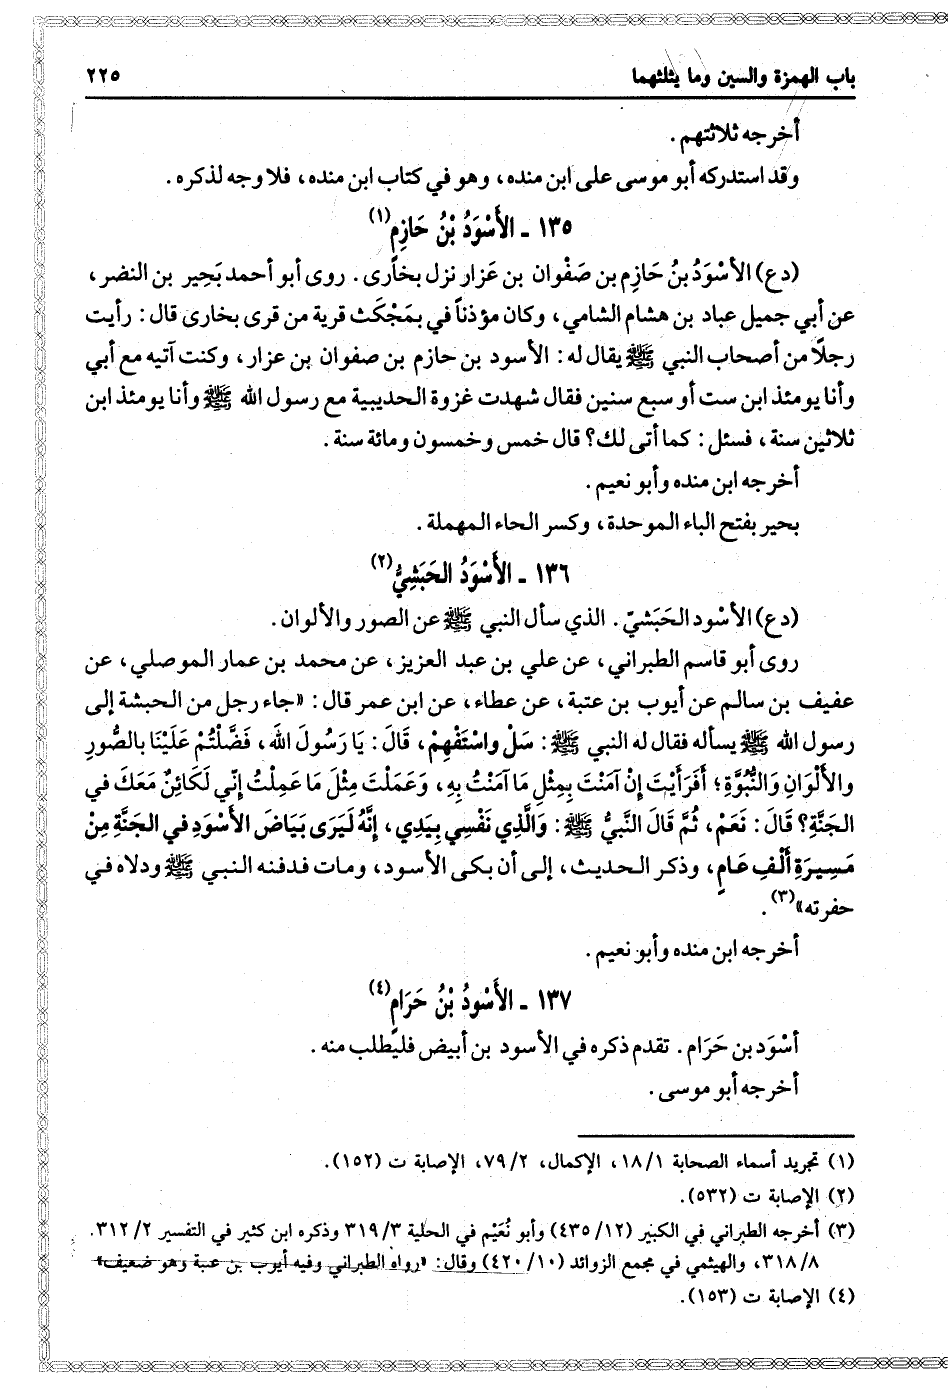 باب الهمزة والسين وما يثلثهما
٢٢٥
أخرجه ثلاثتهم.
وقد استدركه أبو موسى على ابن منده، وهو في كتاب ابن منده، فلا وجه لذكره.
١٣٥ ـ الأَسْوَدُ بْنُ حَازِمٍ(١)
(دع) الأسْوَدُ بنُ حَازِم بن صَفْوان بن عَزار نزل بخارى. روى أبو أحمد بَحِير بن النضر،
عن أبي جميل عباد بن هشام الشامي، وكان مؤذناً في بمَجْكَث قرية من قرى بخارى قال: رأيت
رجلاً من أصحاب النبي ﷺ يقال له: الأسود بن حازم بن صفوان بن عزار، وكنت آتيه مع أبي
وأنا يومئذ ابن ست أو سبع سنين فقال شهدت غزوة الحديبية مع رسول الله ﷺ وأنا يومئذ ابن
ثلاثين سنة، فسئل: كما أتى لك؟ قال خمس وخمسون ومائة سنة.
أخرجه ابن منده وأبو نعيم.
بحير بفتح الباء الموحدة، وكسر الحاء المهملة.
١٣٦ ـ الأَسْوَدُ الحَبَشِيُّ(٢)
(دع) الأسْود الحَبَشيّ. الذي سأل النبي ﷺ عن الصور والألوان.
روى أبو قاسم الطبراني، عن علي بن عبد العزيز، عن محمد بن عمار الموصلي، عن
عفيف بن سالم عن أيوب بن عتبة، عن عطاء، عن ابن عمر قال: «جاء رجل من الحبشة إلى
رسول الله ﷺ يسأله فقال له النبي ﷺ: سَلْ واسْتَفْهِمْ، قَالَ: يَا رَسُولَ اللهَ، فَضَّلْتُمْ عَلَيْنَا بالصُّورِ
والأَلْوَانِ وَالنُّبُوَّةِ؛ أَفَرَأَيْتَ إِنْ آمَنْتَ بِمِثْلِ مَا آمَنْتُ بِهِ، وَعَمَلْتَ مِثْلَ مَا عَمِلْتُ إِنّي لَكَائِنٌ مَعَكَ في
الجَنَّةِ؟ قَالَ: نَعَمْ، ثُمَّ قَالَ النَّبِيُّ ﷺ: وَالَّذِي نَفْسِي بِيَدِي، إِنَّهُ لَيَرَى بَيَاضَ الأَسْوَدِ في الجَنَّةِ مِنْ
مَسِيرَةِ أَلْفِ عَامٍ، وذكر الحديث، إلى أن بكى الأسود، ومات فدفنه النبي ﷺ ودلاه في
حفرته»(٣).
أخرجه ابن منده وأبو نعيم.
١٣٧ ـ الأَسْودُ بْنُ حَرَامٍ(٤)
أسْوَد بن حَرَام. تقدم ذكره في الأسود بن أبيض فليُطلب منه.
أخرجه أبو موسى.
(١) تجريد أسماء الصحابة ١/ ١٨، الإكمال، ٢/ ٧٩، الإصابة ت (١٥٢).
(٢) الإصابة ت (٥٣٢).
(٣) أخرجه الطبراني في الكبير (١٢/ ٤٣٥) وأبو نُعَيْم في الحلية ٣/ ٣١٩ وذكره ابن كثير في التفسير ٢/ ٣١٢.
٨/ ٣١٨، والهيثمي في مجمع الزوائد (١٠/ ٤٢٠) وقال: «رواه الطبراني وفيه أيوب بن عبة وهو ضعيف»
(٤) الإصابة ت (١٥٣).